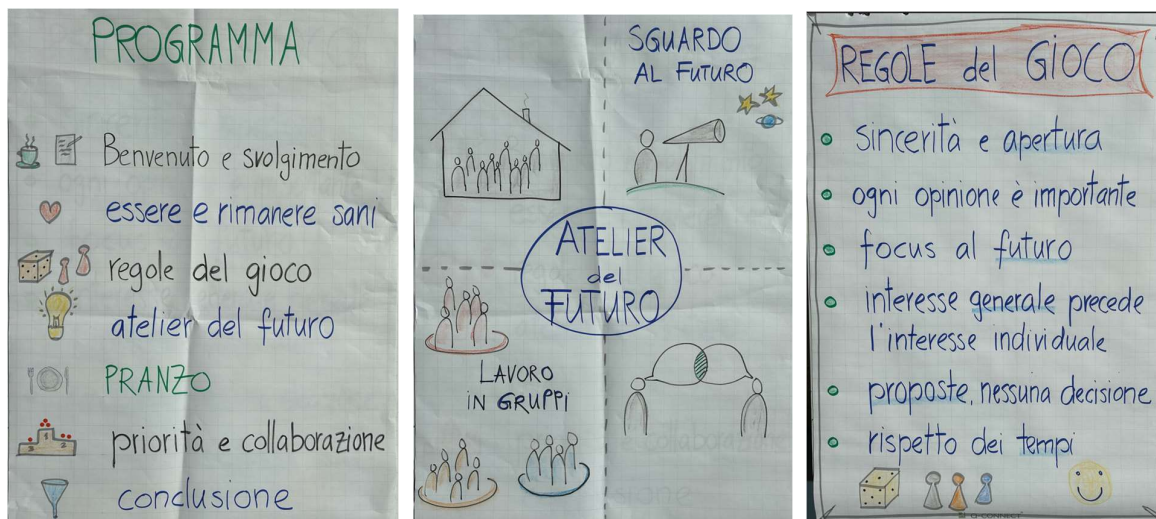 PROGRAMMA
Benvenuto e svolgimento
essere e rimanere sani
regole del gioco
atelier del futuro
PRANZO
priorità e collaborazione
conclusione
SGUARDO
AL FUTURO
ATELIER
del
FUTURO
LAVORO
IN GRUPPI
REGOLE del GIOCO
sincerità e apertura
ogni opinione è importante
focus al futuro
interesse generale precede
l'interesse individuale
proposte, nessuna decisione
rispetto dei tempi